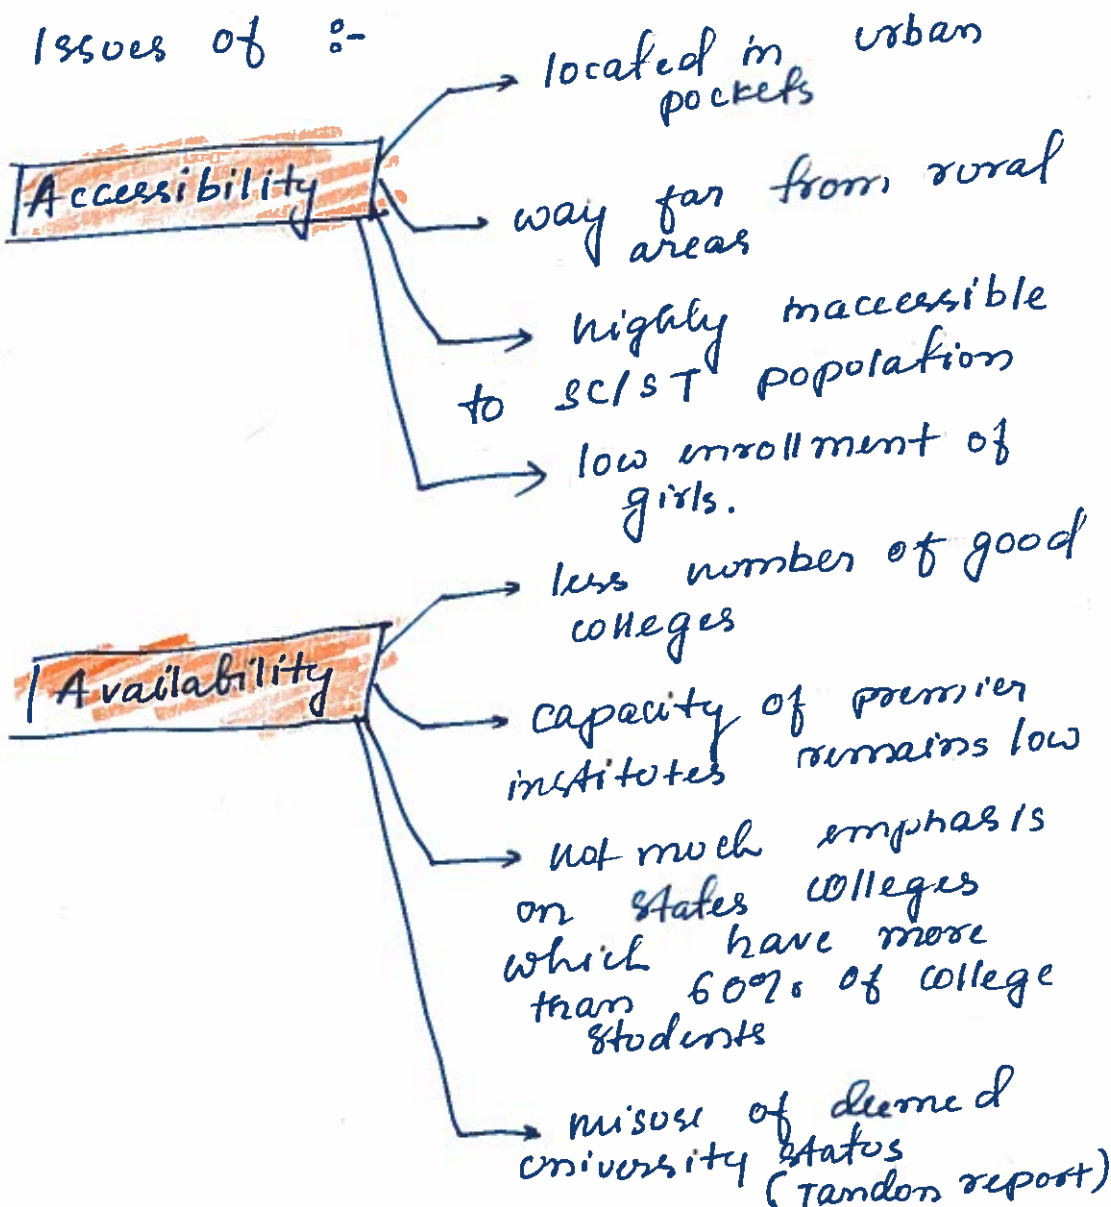 Issues of :-
located in urban
pockets
Accessibility
way far from rural
areas
highly inaccessible
to SC/ST population
low enrollment of
girls.
less number of good
colleges
Availability
capacity of premier
institutes remains low
not much emphasis
on states colleges
which have more
than 60% of college
students
misuse of deemed
university status
(Tandon report)